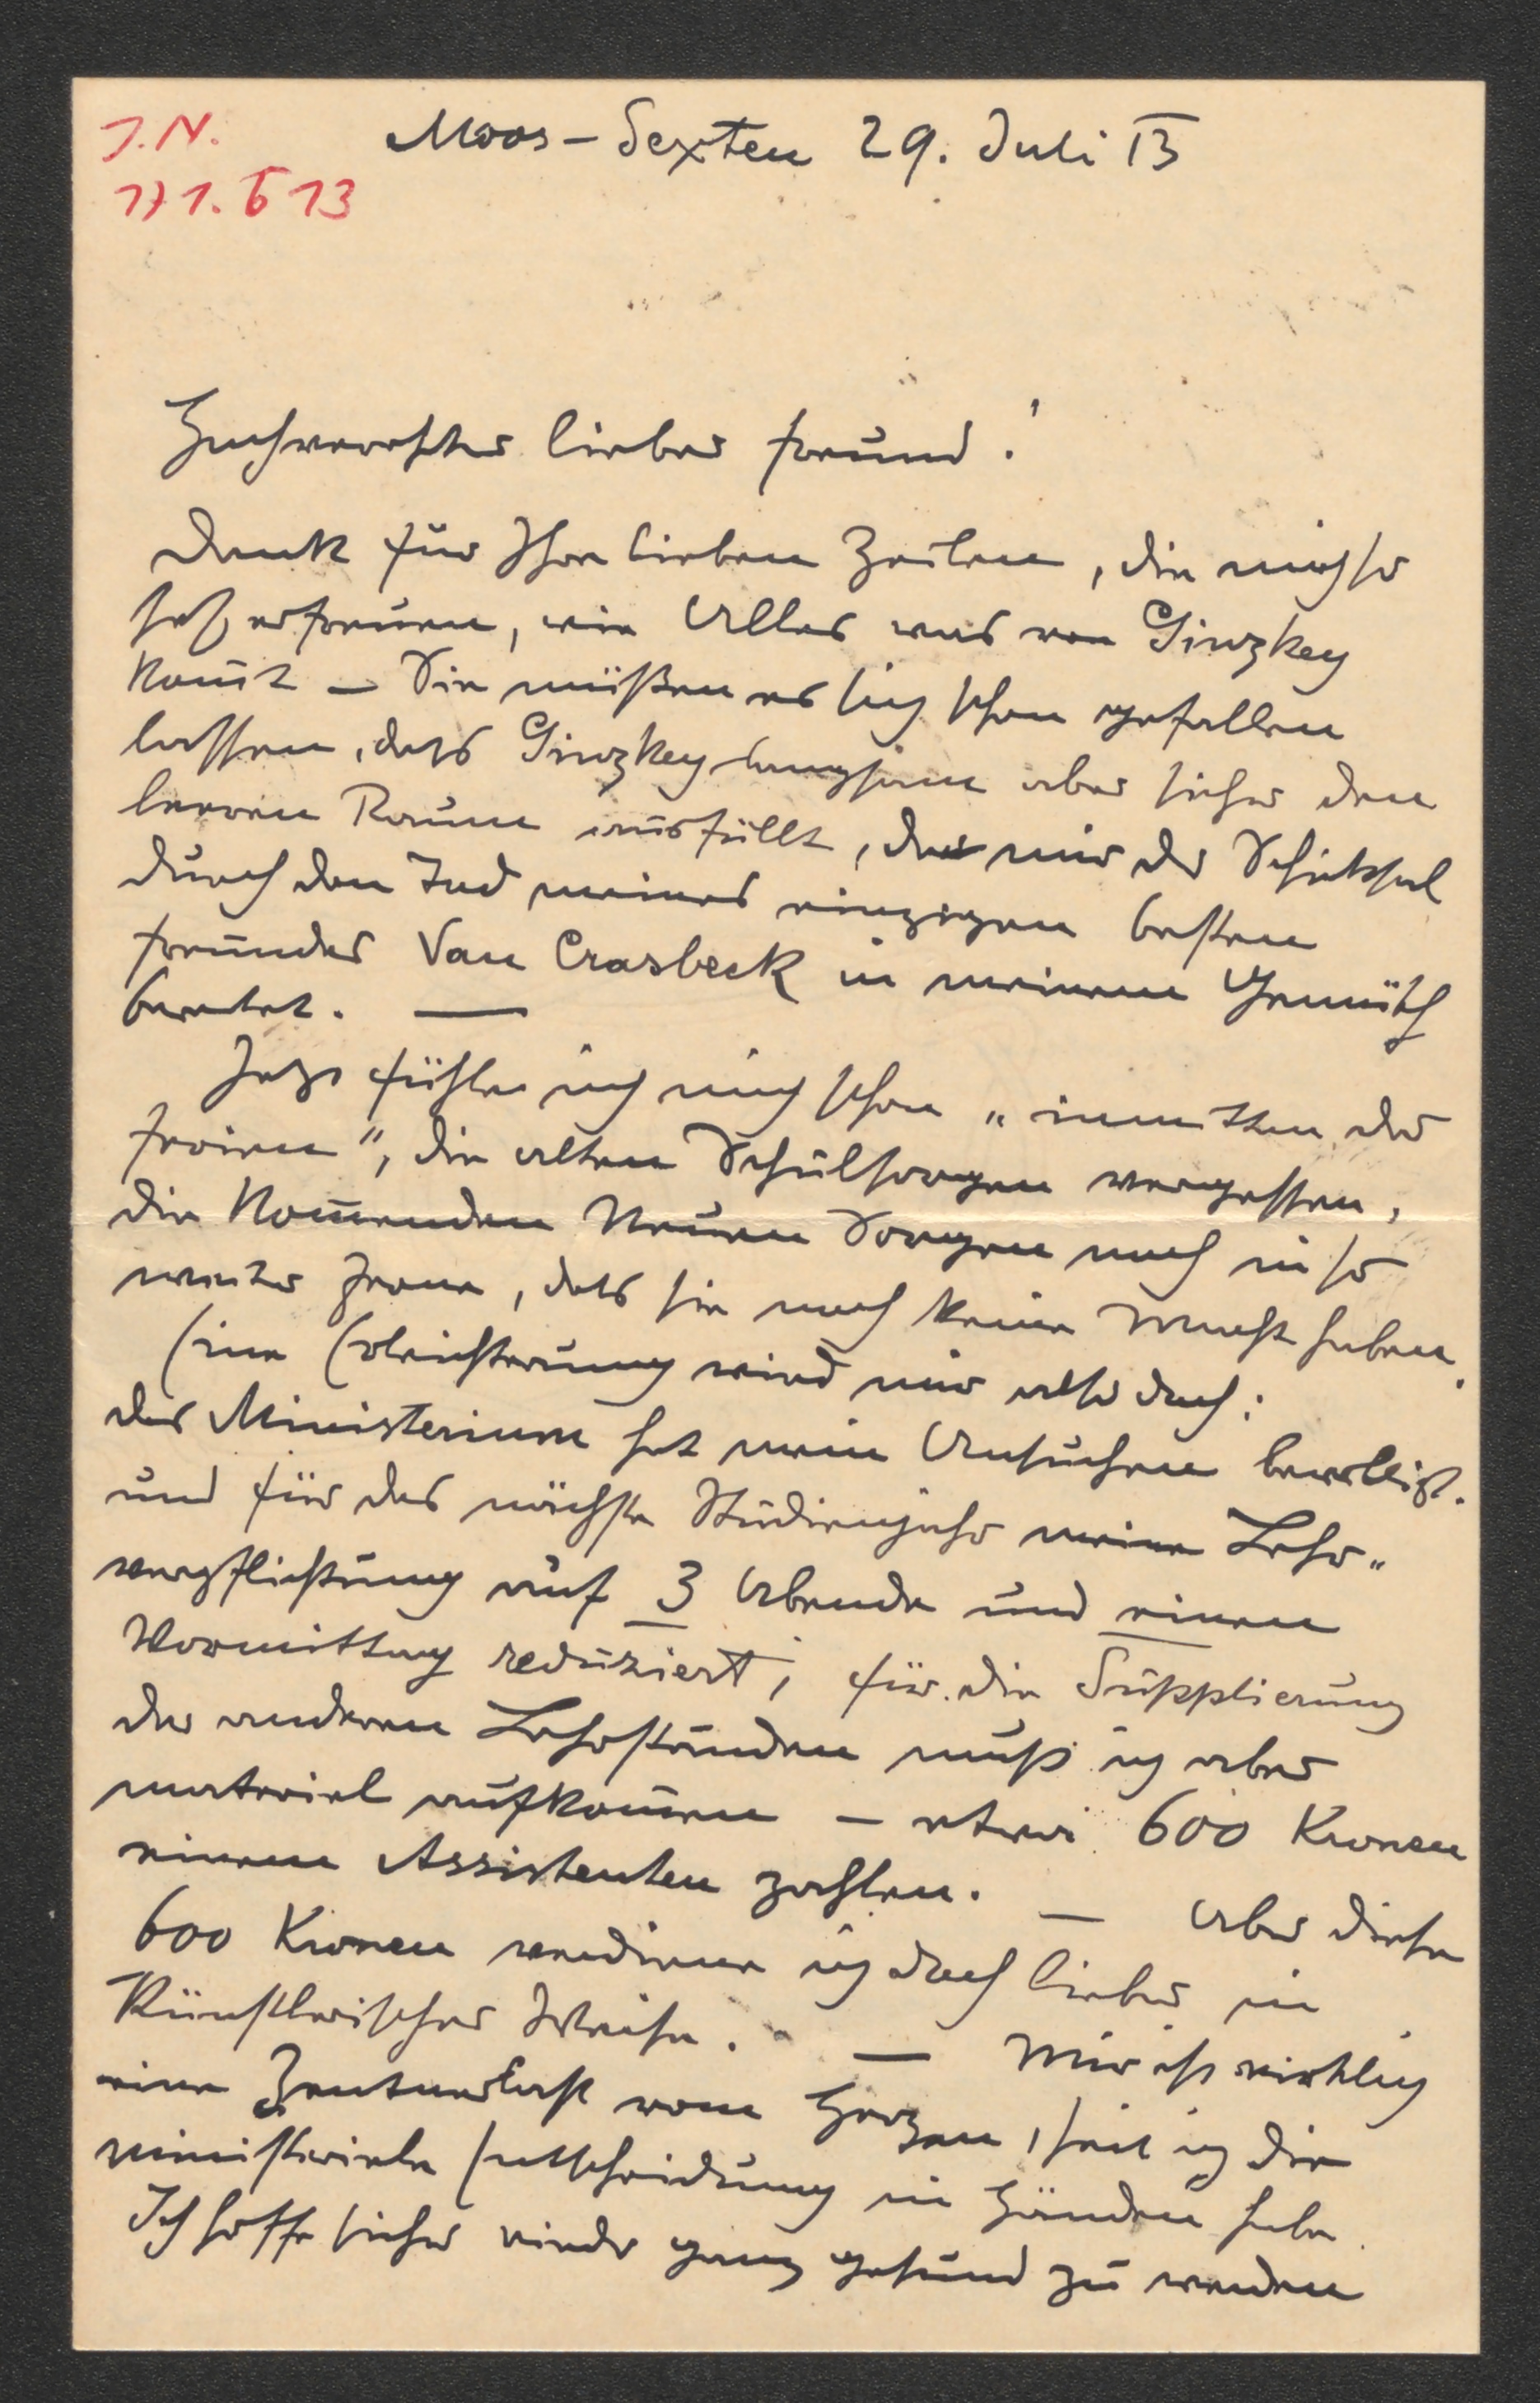 J.N.
171.613
Moos-Sexten 29. Juli 13
Hochverehrter lieber Freund!
Dank für Ihre lieben Zeilen, die mich so
sehr erfreuen, wie Alles was von Ginzkey
kom̅t – Sie müßen es sich schon gefallen
lassen, dass Ginzkey langsam aber sicher den
leeren Raum ausfüllt, den mir das Schicksal
durch den Tod meines einzigen besten
Freundes Van Crasbeck in meinem Gemüth
bereitet. —
Jetzt fühle ich mich schon „inmitten der
Ferien", die alten Schulsorgen vergessen,
die kom̅enden neuen Sorgen noch in so
weiter Ferne, dass sie noch keine Macht haben.
Eine Erleichterung wird mir also doch:
das Ministerium hat mein Ansuchen bewilligt.
und für das nächste Studienjahr meine Lehr-
verpflichtung auf 3 Abende und einen
Vormittag reduziert; für die Supplierung
der anderen Lehrstunden muß ich aber
materiel aufkom̅en – etwa 600 Kronen
einem Assistenten zahlen. — Aber diese
600 Kronen verdiene ich doch lieber in
künstlerischer Weise. — Mir ist wirklich
eine Zentnerlast vom Herzen, seit ich die
ministeriele Entscheidung in Händen habe.
Ich hoffe sicher wieder ganz gesund zu werden